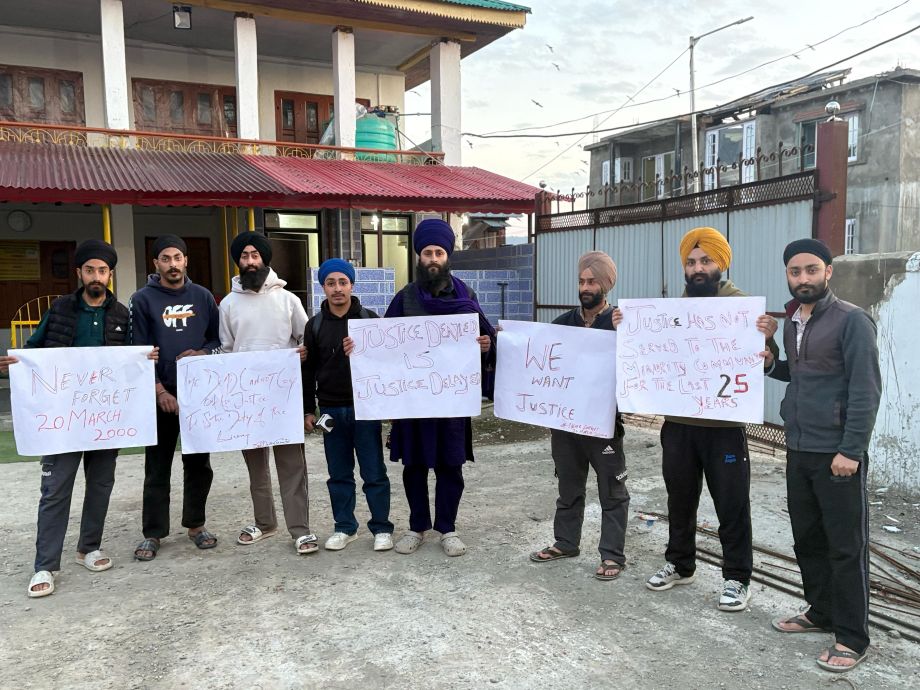 NEVER
FORGET
20 MARCH
2000
THE DEAD CANNOT CRY
JUSTICE
The
JUSTICE DENIED
IS
JUSTICE DELAYED
WE
WANT
JUSTICE
JUSTICE HAS NOT
SERVED TO THE
MINORITY COMMUNITY
FOR THE LAST 25
YEARS
OFF
adidas